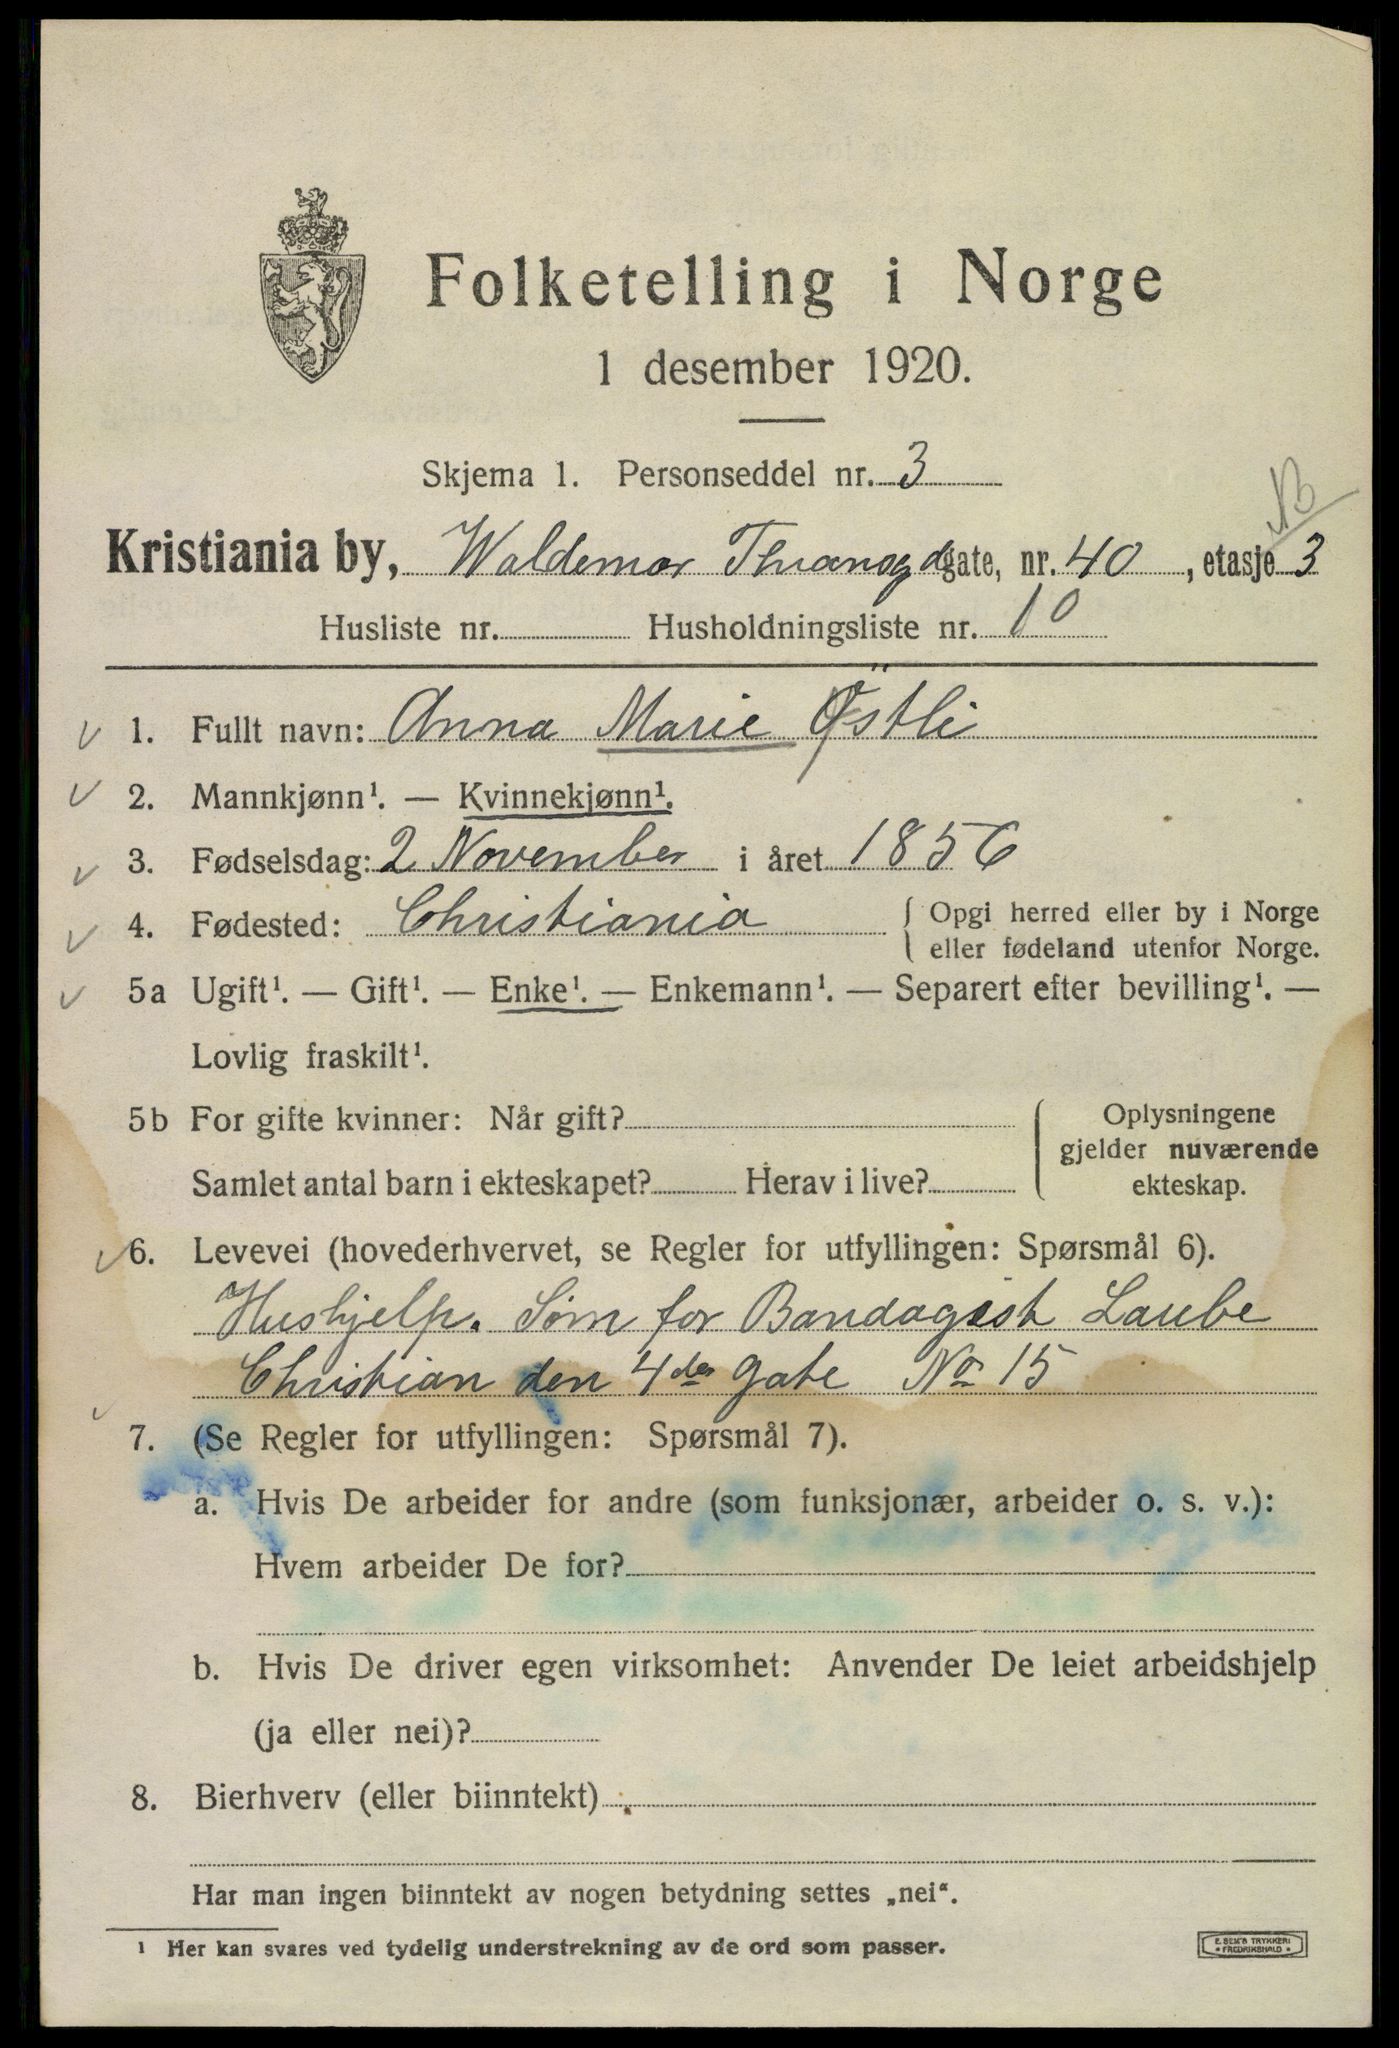 Folketelling i Norge
1 desember 1920.
Skjema 1. Personseddel nr. 3
NB
Kristiania by, Waldemar Thranes gate, nr. 40, etasje 3
Husliste nr. Husholdningsliste nr. 10
1. Fullt navn: Anna Marie Østli
2. Mannkjønn¹. — Kvinnekjønn¹.
3. Fødselsdag: 2 November i året 1856
4. Fødested: Christiania { Opgi herred eller by i Norge
eller fødeland utenfor Norge.
5a Ugift¹. — Gift¹. — Enke¹. — Enkemann¹. — Separert efter bevilling¹. —
Lovlig fraskilt¹.
5b For gifte kvinner: Når gift?
Samlet antal barn i ekteskapet? Herav i live?
Oplysningene
gjelder nuværende
ekteskap.
6. Levevei (hovederhvervet, se Regler for utfyllingen: Spørsmål 6).
Hushjelp. Søm for Bandagist Laube
Christian den 4des gate No 15
7. (Se Regler for utfyllingen: Spørsmål 7).
a. Hvis De arbeider for andre (som funksjonær, arbeider o. s. v.):
Hvem arbeider De for?
b. Hvis De driver egen virksomhet: Anvender De leiet arbeidshjelp
(ja eller nei)?
8. Bierhverv (eller biinntekt)
Har man ingen biinntekt av nogen betydning settes „nei“.
¹ Her kan svares ved tydelig understrekning av de ord som passer.
E. SEM'S TRYKKERI
* FREDRIKSHALD *